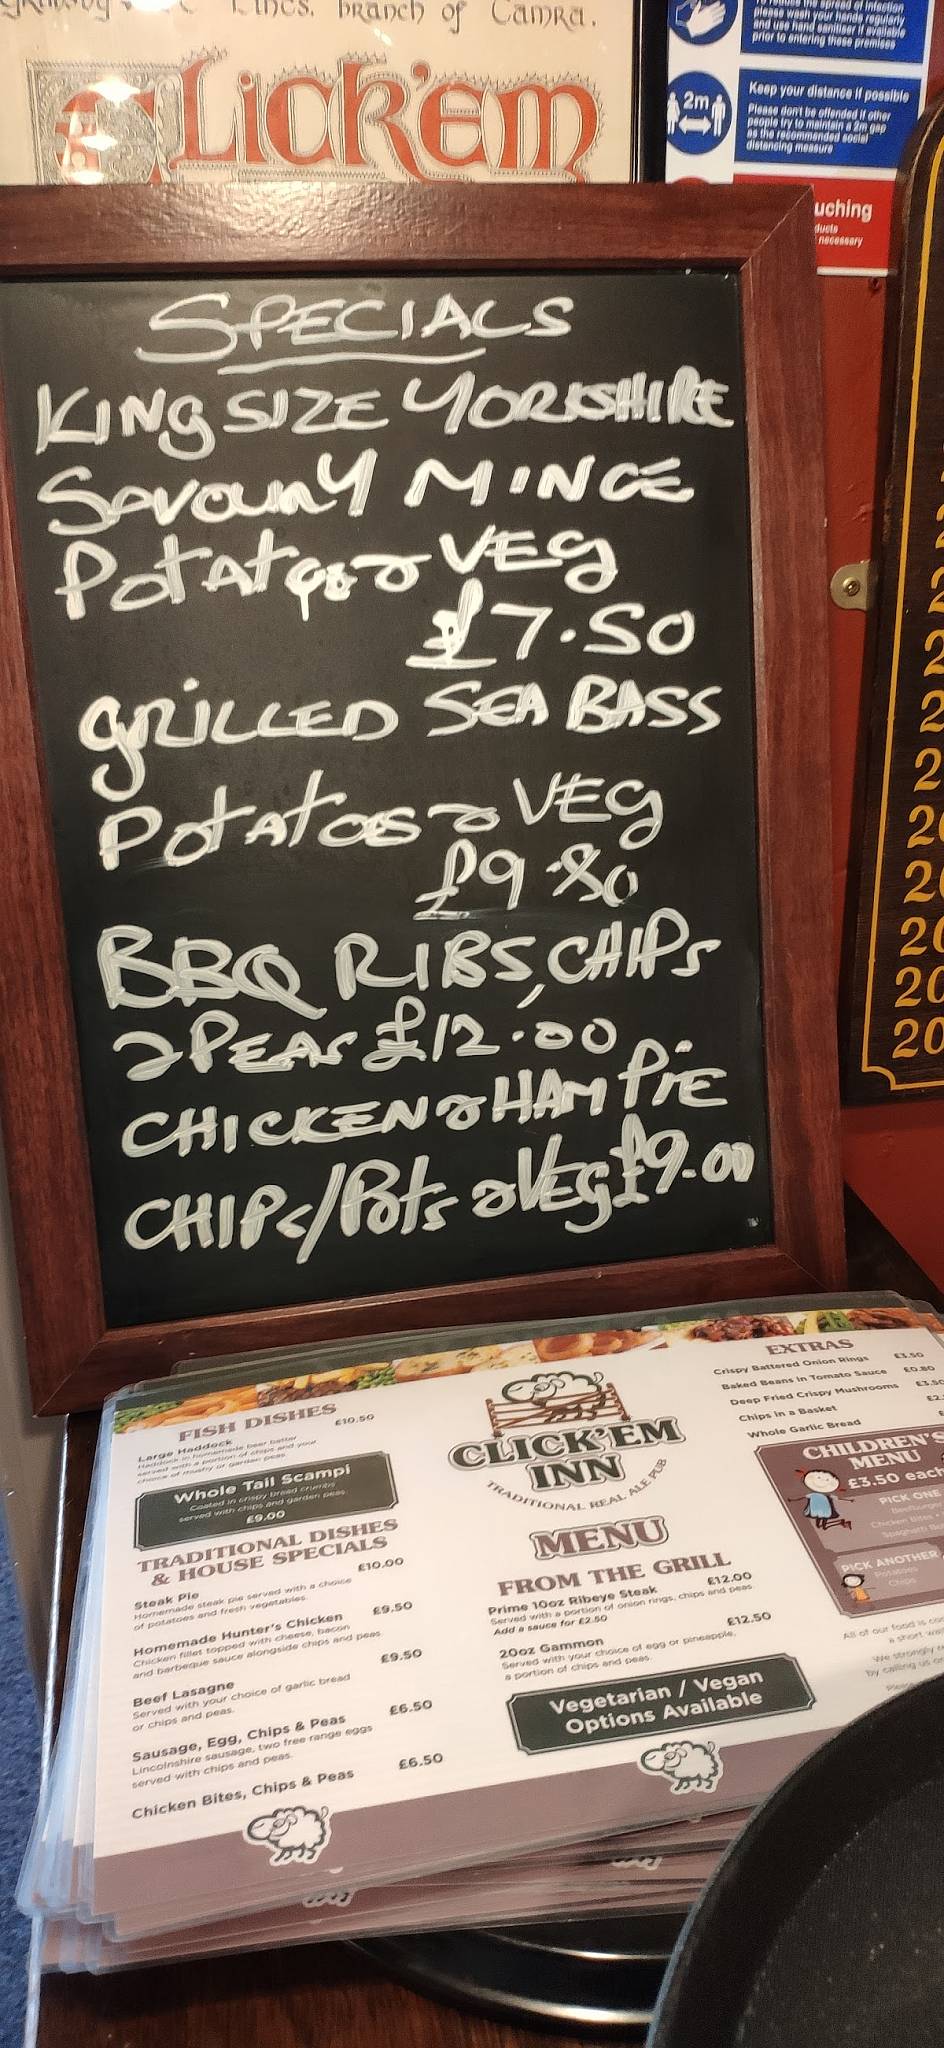 Lincs. branch of Camra.
Click'em
please wash your hands regularly
and use hand sanitiser if available
prior to entering these premises
2m
Keep your distance if possible
Please don't be offended if other
people try to maintain a 2m gap
as the recommended social
distancing measure
necessary
SPECIALS
KING SIZE YORKSHIRE
SAVOURY MINCE
POTATOES & VEG
£7.50
GRILLED SEA BASS
POTATOES & VEG
£9.80
BBQ RIBS, CHIPS
& PEAS £12.00
CHICKEN & HAM PIE
CHIPS/POTS & VEG £9.00
FISH DISHES
Large Haddock £10.50
Haddock in homemade beer batter
served with a portion of chips and your
choice of mushy or garden peas.
Whole Tail Scampi
Coated in crispy bread crumbs
served with chips and garden peas.
£9.00
TRADITIONAL DISHES
& HOUSE SPECIALS
Steak Pie £10.00
Homemade steak pie served with a choice
of potatoes and fresh vegetables.
Homemade Hunter's Chicken £9.50
Chicken fillet topped with cheese, bacon
and barbeque sauce alongside chips and peas.
Beef Lasagne £9.50
Served with your choice of garlic bread
or chips and peas.
Sausage, Egg, Chips & Peas £6.50
Lincolnshire sausage, two free range eggs
served with chips and peas.
Chicken Bites, Chips & Peas £6.50
CLICK'EM
INN
TRADITIONAL REAL ALE PUB
MENU
FROM THE GRILL
Prime 10oz Ribeye Steak £12.00
Served with a portion of onion rings, chips and peas.
Add a sauce for £2.50
20oz Gammon £12.50
Served with your choice of egg or pineapple,
a portion of chips and peas.
Vegetarian / Vegan
Options Available
EXTRAS
Crispy Battered Onion Rings £3.50
Baked Beans in Tomato Sauce £0.80
Deep Fried Crispy Mushrooms £3.50
Chips in a Basket £2.
Whole Garlic Bread £
CHILDREN'S
MENU
£3.50 each
PICK ONE
Chicken Bites
PICK ANOTHER
Potatoes
Chips
All of our food is
a short
We strongly
by calling us